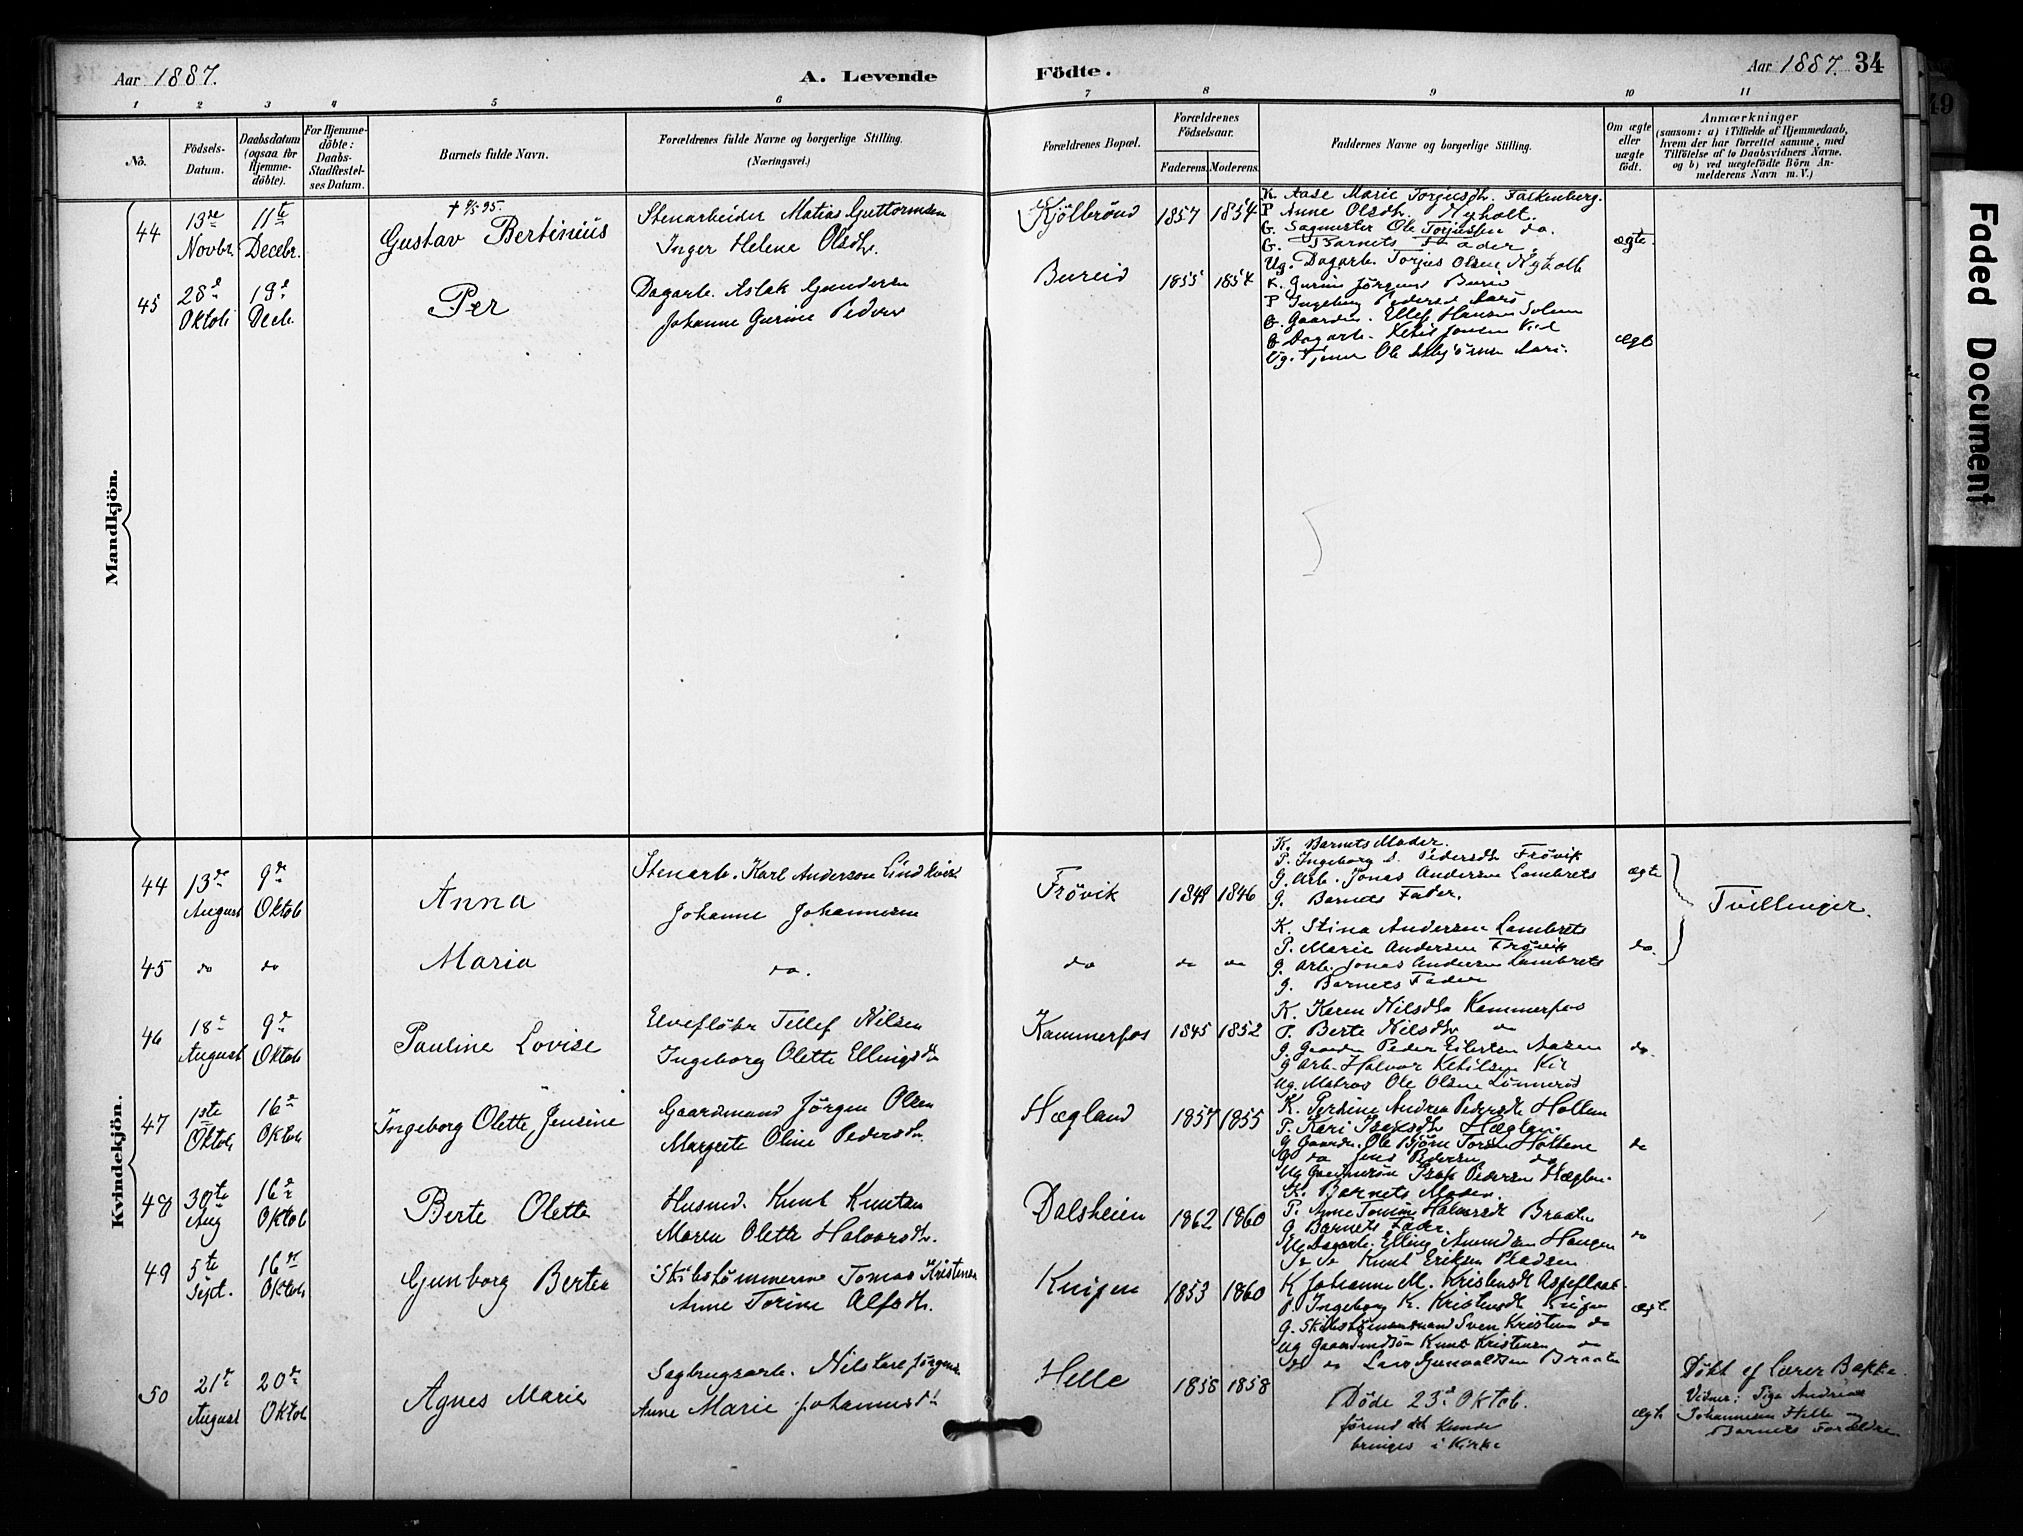 Aar 1887.
A. Levende
Födte.
Aar 1887. 34
1 2 3 4 5 6 7 8 9 10 11
No.
Födsels-Datum.
Daabsdatum (ogsaa for Hjemme-döbte).
For Hjemme-döbte: Daabs-Stadfæstel-ses Datum.
Barnets fulde Navn.
Forældrenes fulde Navne og borgerlige Stilling.
(Næringsvei.)
Forældrenes Bopæl.
Forældrenes Födselsaar.
Faderens. Moderens.
Faddernes Navne og borgerlige Stilling.
Om ægte eller uægte födt.
Anmærkninger
(saasom: a) i Tilfælde af Hjemmedaab,
hvem der har forrettet samme, med
Tilföielse af to Daabsvidners Navne.
og b) ved uægtefödte Börn An-
melderens Navn m. V.)
Mandkjön.
44 13de Novbr. 11te Decebr.
Gustav Bertinius
Stenarbeider Matias Guttormsen
Inger Helene Olsdtr.
Kjölbrönd 1857 1854
K. Aase Marie Torjusdtr. Falkenberg.
P Anne Olsdtr. Nyholt.
G. Sagmester Ole Torjussen do.
G. Barnets Fader.
Ug. Dagarb. Torjus Olsen Nyholt
ægte.
45 28de Oktob 19de Decb.
Per
Dagarb. Aslak Gundersen
Johanne Gurine Peders
Bureid 1855 1854
K. Gurine Jörgens Bureid
P Ingeborg Pedersd Aars
G. Gaardm. Ellef Hansen Solem
G Dagarb. Ketil Jensen
Ug. Tjener Ole Asbjörnsen Aars.
ægte
Kvindekjön.
44 13de August 9de Oktob
Anna
Stenarb. Karl Anderson Lindkvist
Johanne Johannesen
Frövik 1849 1846
K. Barnets Moder.
P. Ingeborg S. Pedersdtr Frövik
G. Arb. Jonas Andersen Lambrets
G. Barnets Fader.
ægte
Tvillinger.
45 do do
Maria
do.
do do do
K. Stina Andersen Lambrets
P. Marie Andersen Frövik
G. Arb. Jonas Andersen Lambrets
G. Barnets Fader
do.
46 18de August 9de Oktob
Pauline Lovise
Elveflöber Tellef Nilsen
Ingeborg Olette Ellingsdtr
Kammerfos 1845 1852
K. Karen Nilsdtr Kammerfos
P. Berte Nilsdtr do
G. Gaardm Peder Eilertsen Aasen
G Arb. Halvor Ketilsen Kil
Ug. Matros Ole Olsen Lönneröd
do.
47 1ste Oktob 16de Oktob
Ingeborg Olette Jensine
Gaardmand Jörgen Olsen
Margrete Oline Pedersdtr
Hægland 1857 1855
K. Persine Andrea Pedersdtr Holtene
P. Kari Isaksdtr Hæglan.
G Gaardm. Ole Björn Torsen Holtene
G do Jens Pedersen do
Ug Gaardmsön Isak Pedersen Hæglan.
do
48 30te Aug 16de Oktob
Berte Olette
Husmd. Knut Knutsen
Maren Olette Halvorsdtr.
Dalsheien 1862 1860
K. Barnets Moder.
P. Anne Tomine Halvorsdtr Braaten
G Barnets Fader.
Ug Dagarb. Elling Amundsen Haugen
Do do Knut Eriksen Pladsen
do
49 5te Sept. 16de Oktob
Gunborg Bertea
Skibstömmerm Tomas Kristensen
Anne Torine Alfsdtr.
Knipen 1853 1860
K Johanne M. Kristensdtr Aspeflaat.
P. Ingeborg K. Kristensdtr Knipen
G. Skibstömmermand Sven Kristensen do
Ug Gaardmdsön Knut Kristensen do
do do Lars Gunvaldsen Braaten
ægte
50 21de August 20de Oktob
Agnes Marie
Sagbrugsarb. Nils Karl Jörgensen
Anne Marie Johannesd
Helle 1858 1858
Döde 23de Oktob.
förend det kunde
bringes i Kirke
ægte
Döbt af Lærer Bakke.
Vidner: Pige Andrea
Johannesen Helle og
Barnets Forældre.
Faded Document